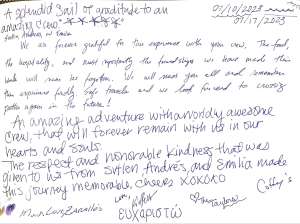 A splendid sail of gratitude to an
amazing Crew
07/10/2023
07/17/2023
We are forever grateful to experience with your crew. The food,
the hospitality, and most importantly the friendships we have made this
week will never be forgotten. We will miss you all and remember
this experience fondly. Safe travels and we look forward to crossing
paths again in the future!
An amazing adventure with a worldly awesome
crew, that will forever remain with us in our
hearts and souls.
The respect and honorable kindness that was
given to us from Andres, and Emilia made
this journey memorable, cheers XOXOXO
ευχαριστώ